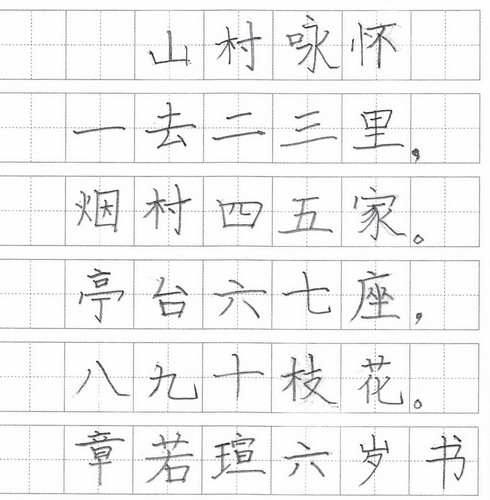 山村咏怀
一去二三里，
烟村四五家。
亭台六七座，
八九十枝花。
章若瑄六岁书